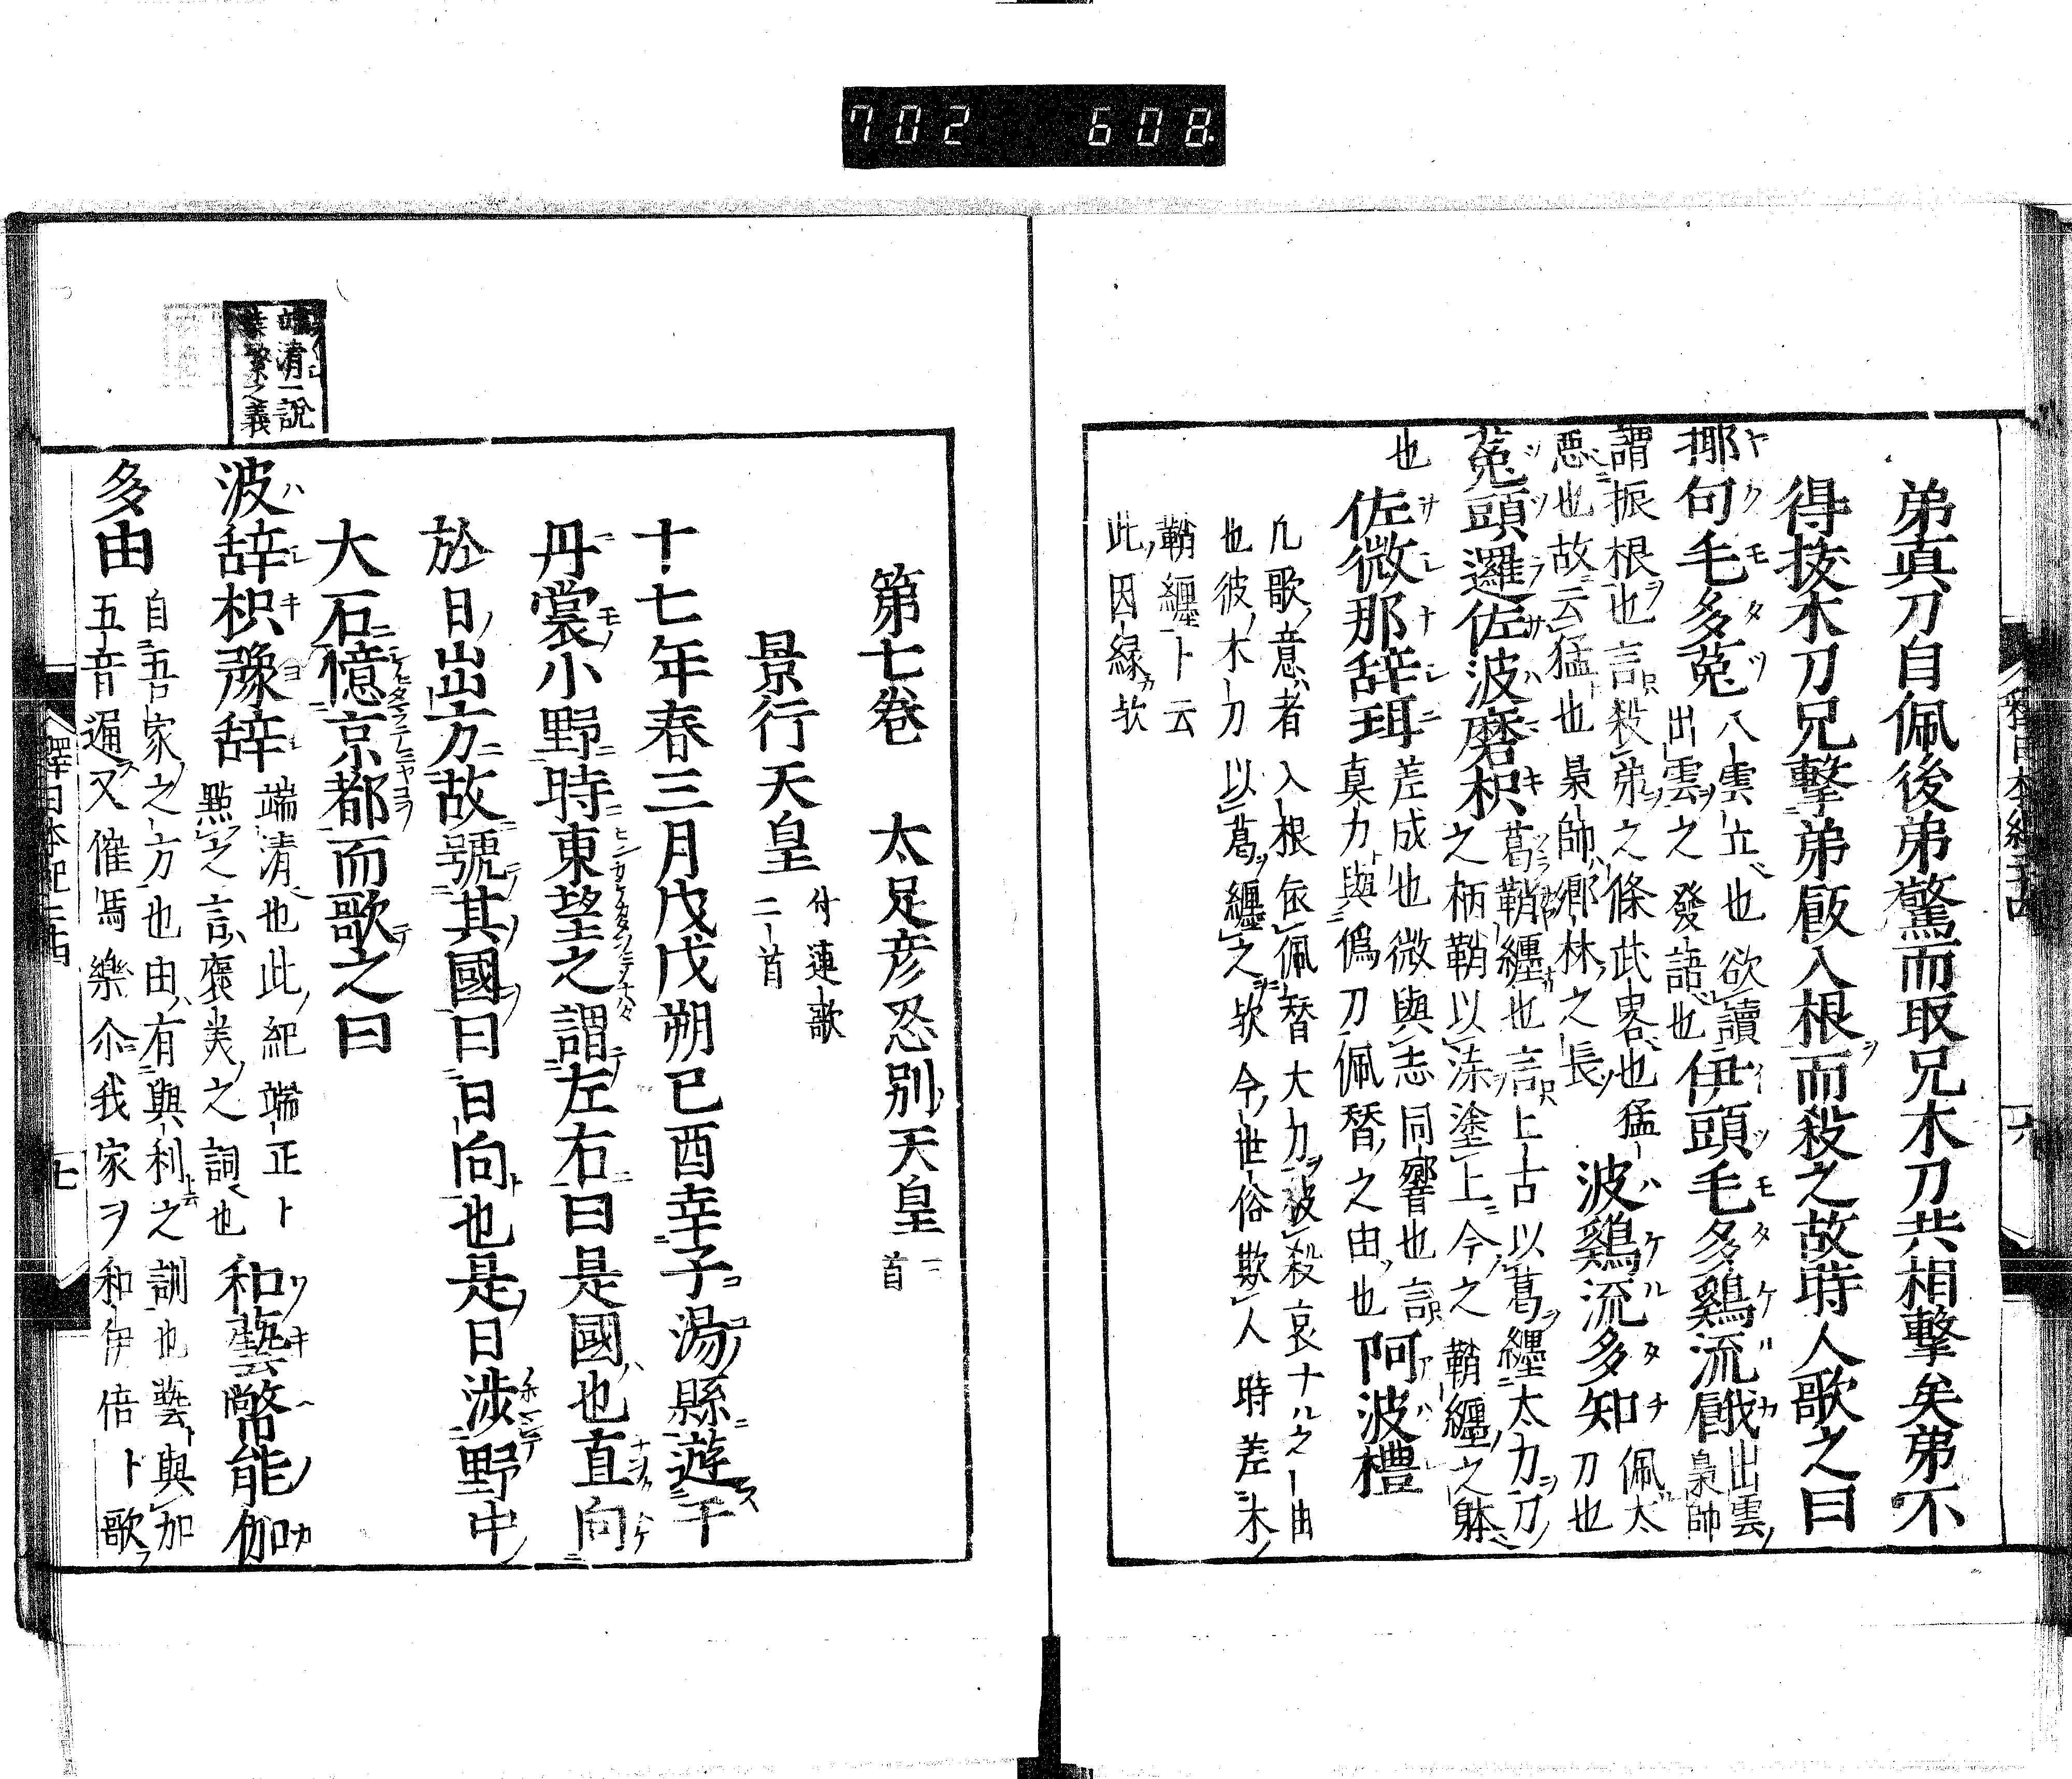 702 608
弟真刀自佩後弟驚而取兄木刀共相擊矣弟不
得拔木刀兄擊弟飯入根而殺之故時人歌之曰
揶句毛多菟 八雲立也欲讀
出雲之發語也 伊頭毛多鷄流餓 出雲
梟帥
謂振根也言殺弟之條此畧也猛
惡也故云猛也梟帥鄉林之長 波鷄流多知 佩太
刀也
菟頭邏佐波磨枳 葛鞘纏也言上古以葛纏太刀刀
之柄鞘以漆塗上今之鞘纏之躰
也 佐微那辞珥 差成也微與志同響也言
真刀與偽刀佩替之由也 阿波禮
凡歌意者入根依佩替大刀被殺哀ナル之由
也彼木刀以葛纏之欤今世俗欺人時差木
鞘纏ト云
此因緣欤
第七卷 太足彦忍別天皇 一
首
景行天皇 付連歌
二首
十七年春三月戊戌朔己酉幸子湯縣遊于
丹裳小野時東望之謂左右曰是國也直向
於日出方故號其國曰日向也是日渉野中
大石憶京都而歌之曰
波辞枳豫辞 端清也此紀端正ト
點之言褒美之詞也 和藝幣能伽
多由 自吾家之方也由有與利之訓也藝與加
五音通又催馬樂尒我家ヲ和伊倍ト歌
端清一說
繁之義
釋日本紀二十四
七
六